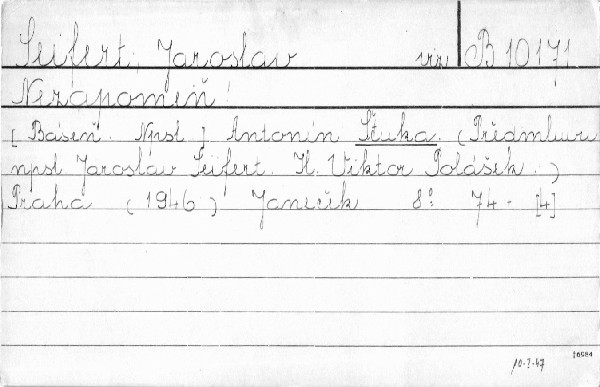 Seifert, Jaroslav viz B 10171
Nezapomeň!
[Báseň. Npsl.] Antonín Ščuka. (Předmluvu
npsl Jaroslav Seifert. Il. Viktor Polášek.)
Praha (1946) Janečík 8° 74 - [4]